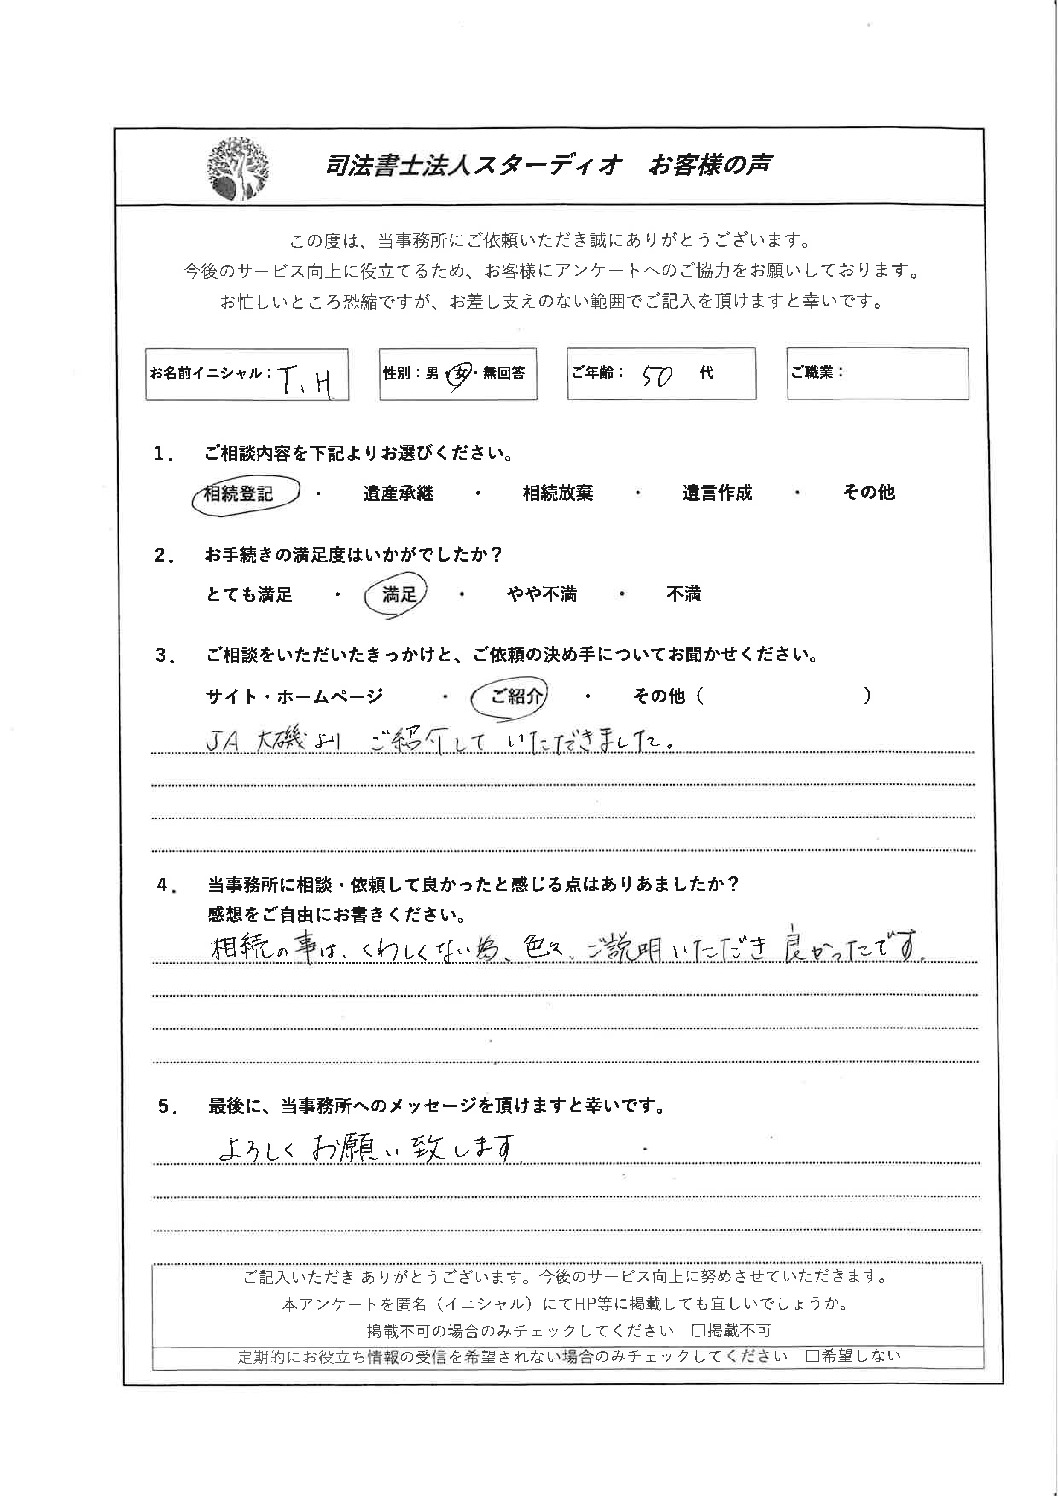 司法書士法人スターディオ お客様の声
この度は、当事務所にご依頼いただき誠にありがとうございます。
今後のサービス向上に役立てるため、お客様にアンケートへのご協力をお願いしております。
お忙しいところ恐縮ですが、お差し支えのない範囲でご記入を頂けますと幸いです。
お名前イニシャル：T.H 性別：男・女・無回答 ご年齢：50代 ご職業：
1. ご相談内容を下記よりお選びください。
相続登記 ・ 遺産承継 ・ 相続放棄 ・ 遺言作成 ・ その他
2. お手続きの満足度はいかがでしたか？
とても満足 ・ 満足 ・ やや不満 ・ 不満
3. ご相談をいただいたきっかけと、ご依頼の決め手についてお聞かせください。
サイト・ホームページ ・ ご紹介 ・ その他（ ）
JA大磯よりご紹介していただきました。
4. 当事務所に相談・依頼して良かったと感じる点はありあましたか？
感想をご自由にお書きください。
相続の事は、くわしくない為、色々、ご説明いただき良かったです。
5. 最後に、当事務所へのメッセージを頂けますと幸いです。
よろしくお願い致します
ご記入いただき ありがとうございます。今後のサービス向上に努めさせていただきます。
本アンケートを匿名（イニシャル）にてHP等に掲載しても宜しいでしょうか。
掲載不可の場合のみチェックしてください □掲載不可
定期的にお役立ち情報の受信を希望されない場合のみチェックしてください □希望しない